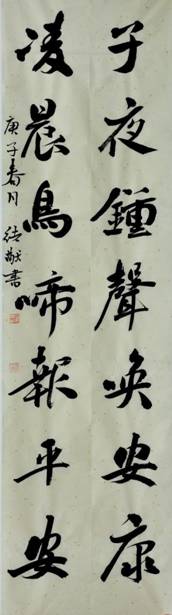 子夜鍾聲喚安康
凌晨鳥啼報平安
庚子春月 结猷書